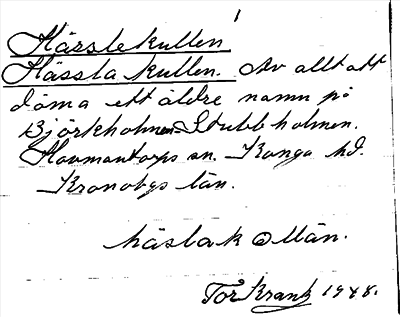 Hässlekullen
Hässla kullen. Av allt att
döma ett äldre namn på
Björkholmen-Stubbholmen.
Hovmantorps sn. Konga hd.
Kronobgs län.
häslak
Tor Krantz 1948.